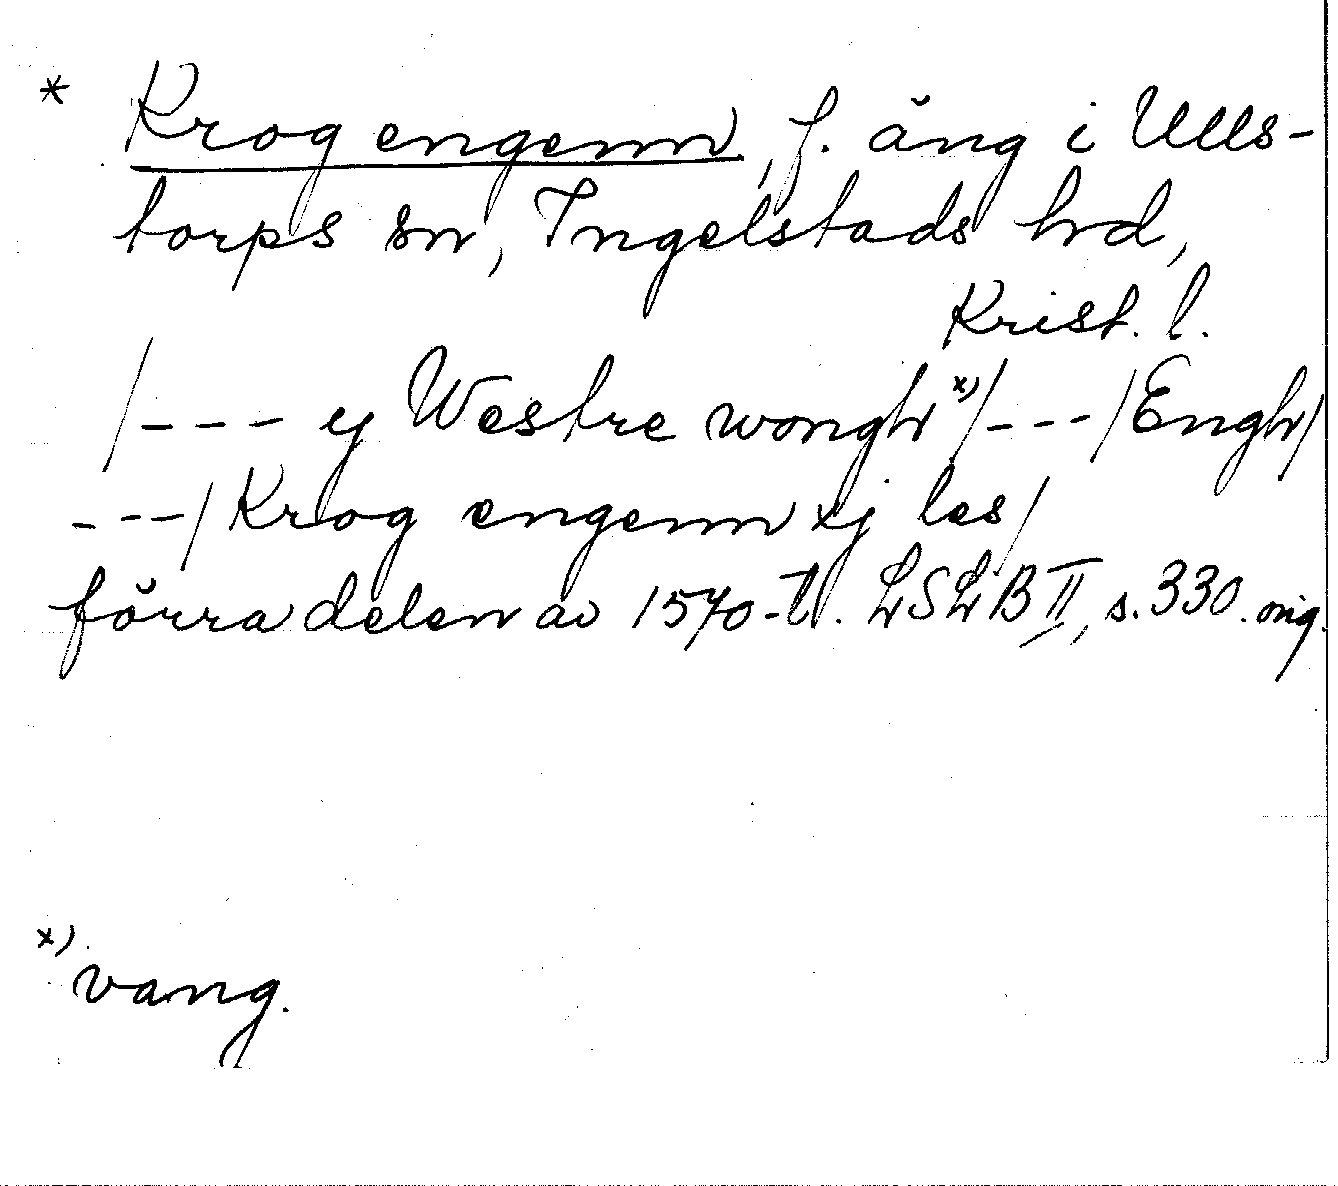 * Krog engenn, f. äng i Ulls-
torps sn, Ingelstads hd,
Krist. l.
/--- ej Westre wongh x)/---/Engh/
---/Krog engenn xj les/
förra delen av 1570-t. LSLB II, s. 330. orig.
x) vang.